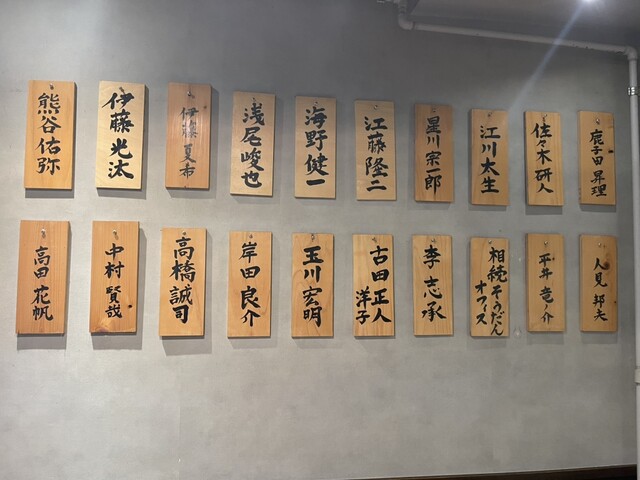 鹿子田 昇理
佐々木 研人
江川 太生
星川 宗一郎
江藤 隆二
海野 健一
浅尾 峻也
伊藤 夏希
伊藤 光汰
熊谷 佑弥
人見 邦夫
平井 竜ノ介
相続そうだん
オフィス
李 志承
古田 正人
洋子
玉川 宏明
岸田 良介
高橋 誠司
中村 賢哉
高田 花帆